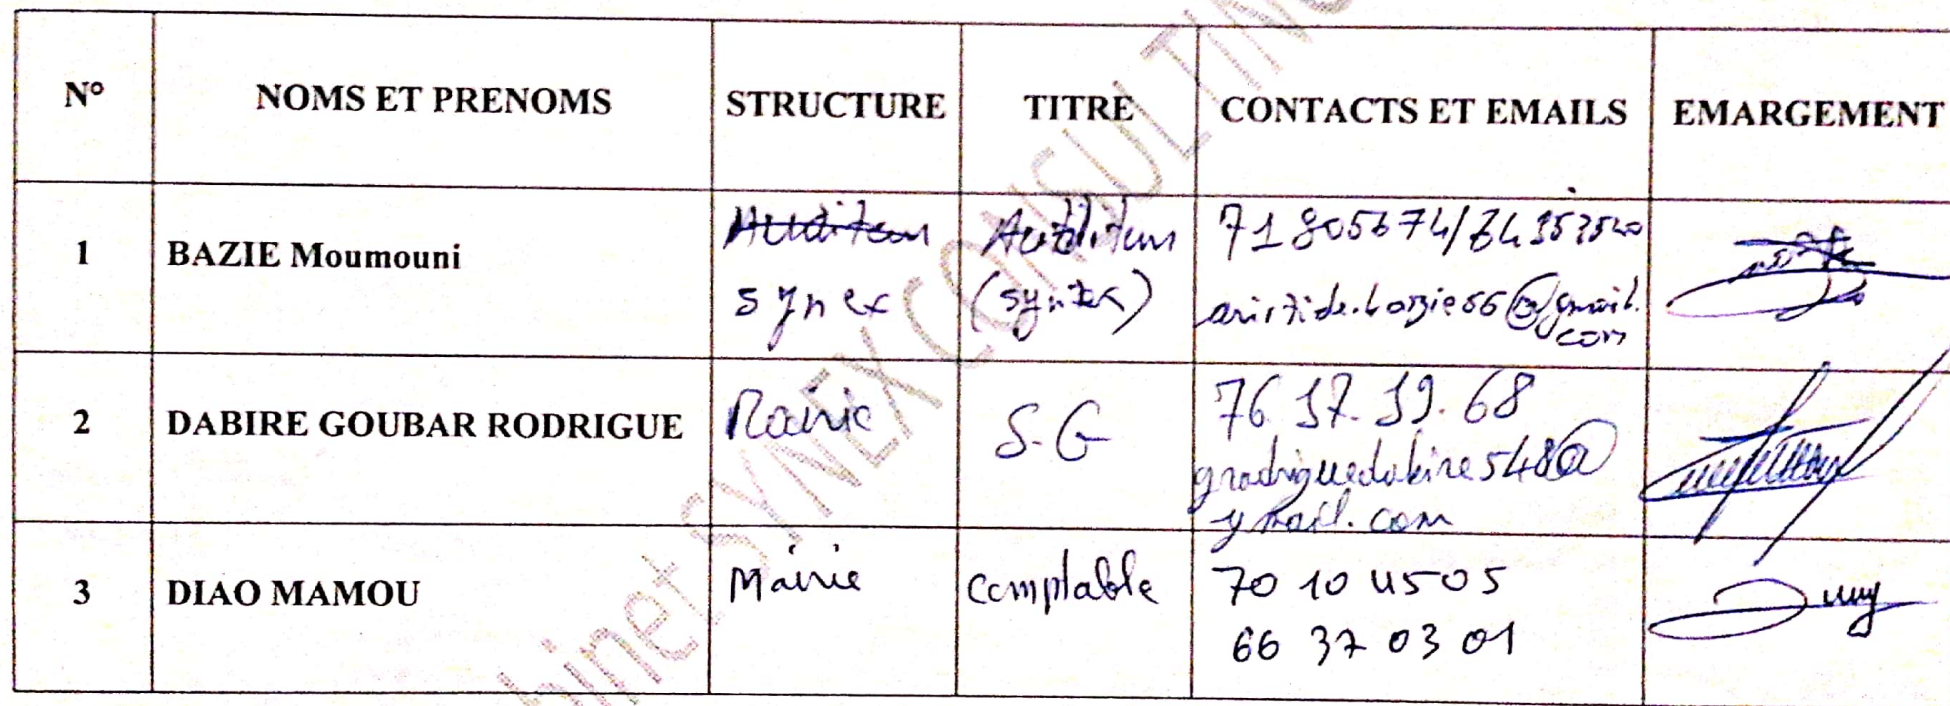 N° NOMS ET PRENOMS STRUCTURE TITRE CONTACTS ET EMAILS EMARGEMENT
1 BAZIE Moumouni Auditeur Auditeur
synex (synex) @gmail.
com
2 DABIRE GOUBAR RODRIGUE Mairie S.G 76.17.19.68
grodriguedabire548@
ymail.com
3 DIAO MAMOU Mairie comptable 70 10 45 05
66 37 03 01
Cabinet SYNEX CONSULTING